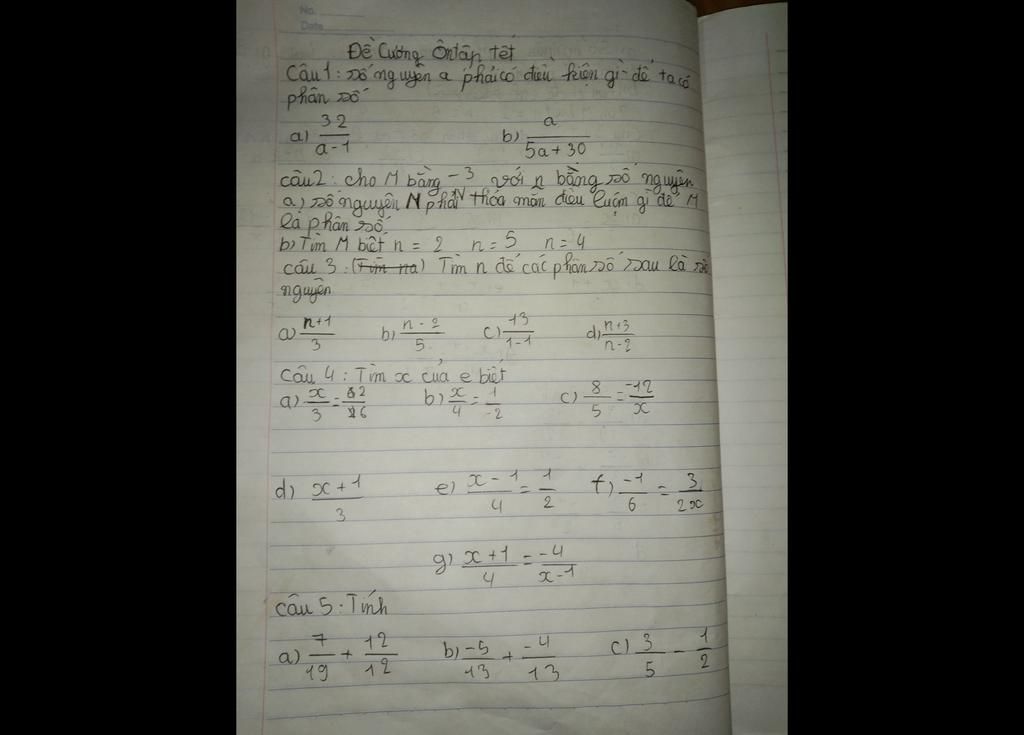 No.
Date
Đề Cương Ôn tập tết
Câu 1: Số nguyên a phải có điều kiện gì để ta có
phân số
a) 32/(a-1) b) a/(5a+30)
câu 2: cho M bằng -3 với n bằng số nguyên
a) số nguyên N phải thỏa mãn điều gì để M
là phân số
b) Tìm M biết n = 2 n = 5 n = 4
câu 3: (Tìm na) Tìm n để các phân số sau là số
nguyên
a) (n+1)/3 b) (n-2)/5 c) 13/(1-1) d) (n+3)/(n-2)
Câu 4: Tìm x của e biết
a) x/3 = b) x/4 = 1/-2 c) 8/5 = -12/x
d) (x+1)/3 e) (x-1)/4 = 1/2 f) -1/6 = 3/2x
g) (x+1)/4 = -4/(x-1)
Câu 5: Tính
a) 7/19 + 12/12 b) -5/13 + -4/13 c) 3/5 - 1/2